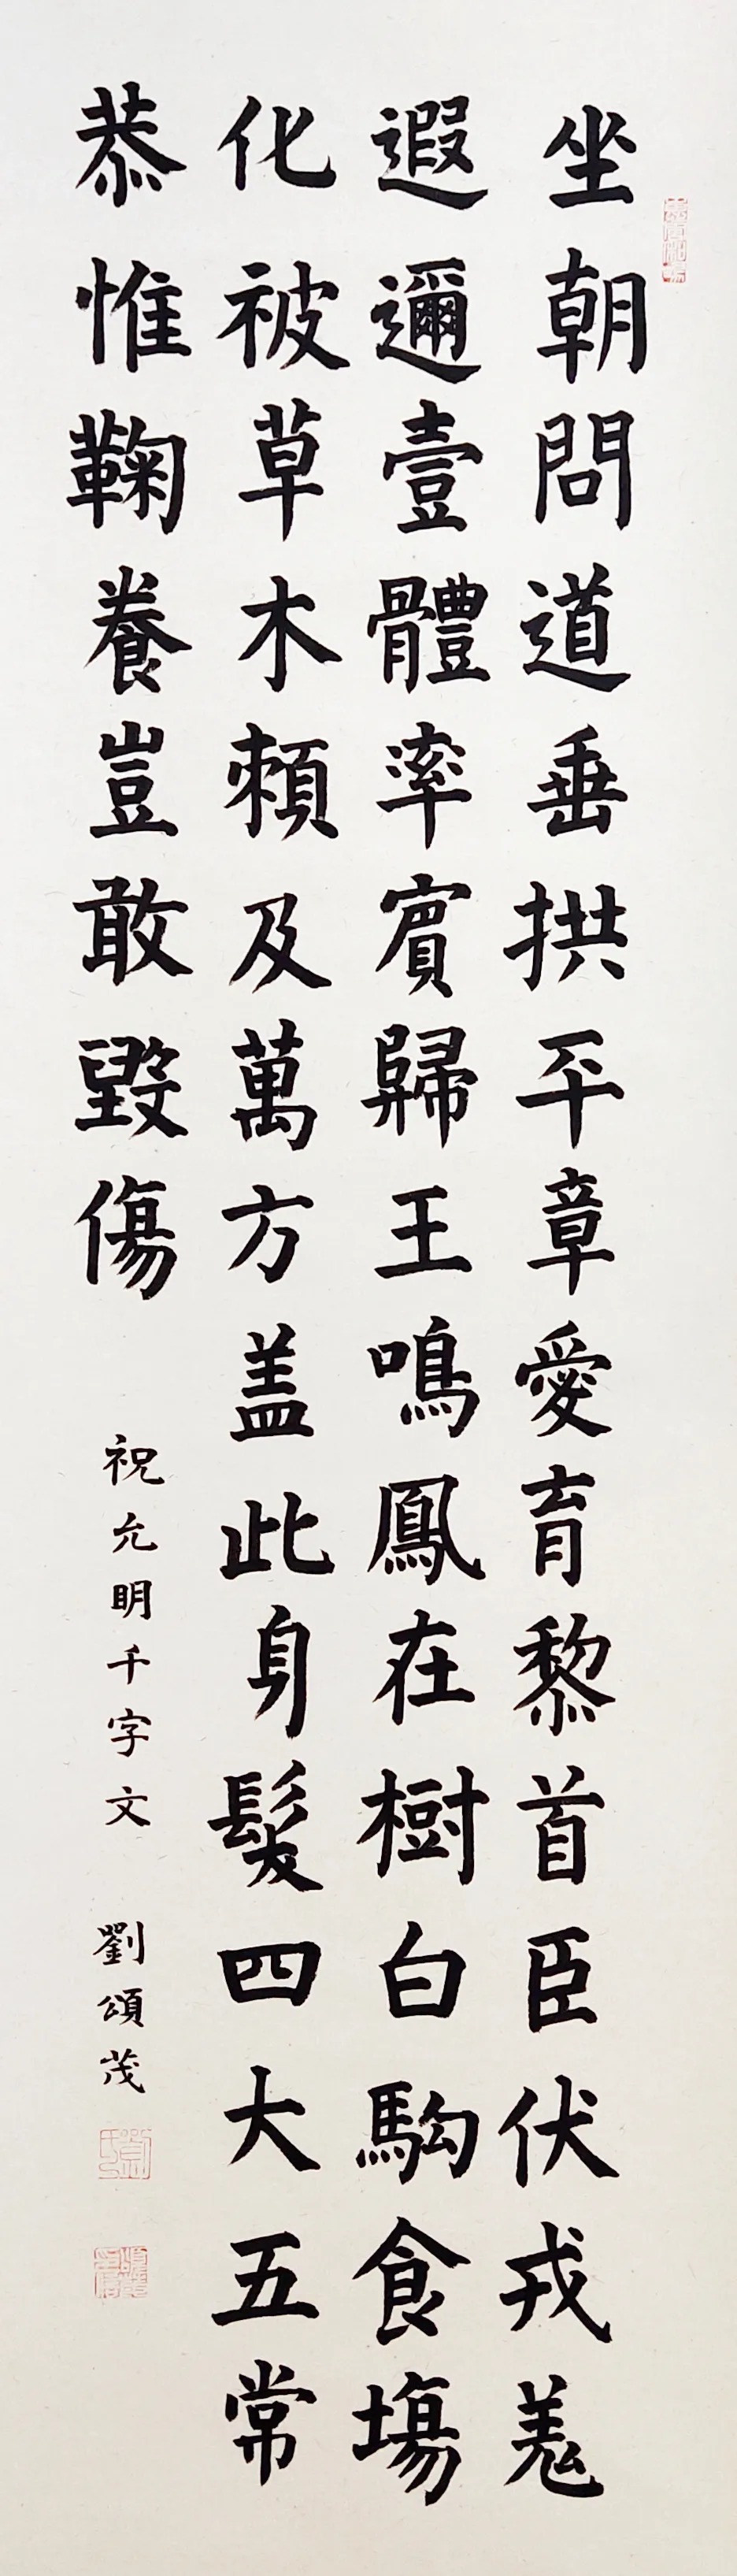 坐朝問道垂拱平章愛育黎首臣伏戎羌
遐邇壹體率賓歸王鳴鳳在樹白駒食場
化被草木賴及萬方盖此身髮四大五常
恭惟鞠養豈敢毀傷
祝允明千字文 劉頌茂